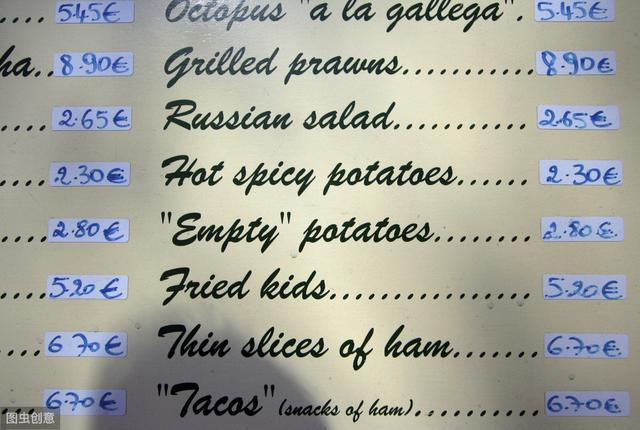 .... 5.45€ Octopus "a la gallega". 5.45€
ha.. 8.90€ Grilled prawns.............. 8.90€
.... 2.65€ Russian salad............ 2.65€
.... 2.30€ Hot spicy potatoes...... 2.30€
.... 2.80€ "Empty" potatoes........ 2.80€
.... 5.20€ Fried kids.................. 5.20€
.... 6.70€ Thin slices of ham....... 6.70€
.... 6.70€ "Tacos" (snacks of ham)........... 6.70€
图虫创意